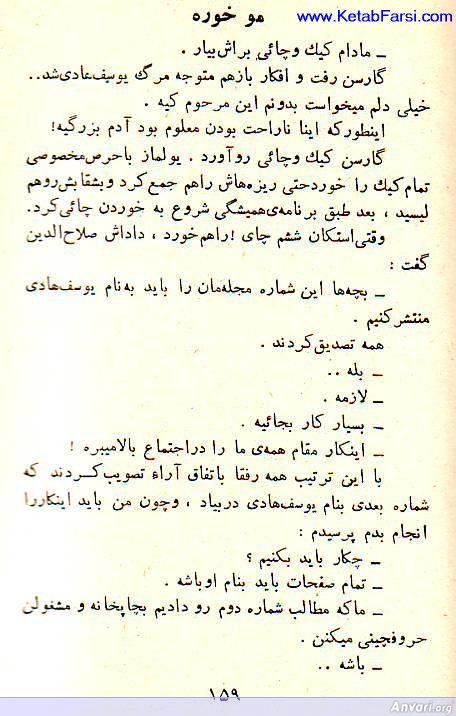 www.KetabFarsi.com
مو خوره
ـ مادام کیك وچائی براش‌بیار .
گارسن رفت و افکار بازهم متوجه مرگ یوسف‌هادی‌شد..
خیلی دلم میخواست بدونم این مرحوم کیه .
اینطورکه اینا ناراحت بودن معلوم بود آدم بزرگیه!
گارسن کیك وچائی روآورد . یولماز باحرص‌مخصوصی
تمام‌کیك را خوردحتی ریزه‌هاش راهم جمع‌کرد وبشقابش‌روهم
لیسید ، بعد طبق برنامه‌ی‌همیشگی شروع به خوردن چائی‌کرد.
وقتی‌استکان ششم چای !راهم‌خورد ، داداش صلاح‌الدین
گفت :
ـ بچه‌ها این شماره مجله‌مان را باید به‌نام یوسف‌هادی
منتشرکنیم .
همه تصدیق‌کردند .
ـ بله ..
ـ لازمه .
ـ بسیار کار بجائیه .
ـ اینکار مقام همه‌ی ما را دراجتماع بالامیبره !
با این ترتیب همه رفقا باتفاق آراء تصویب‌کردند که
شماره بعدی بنام یوسف‌هادی دربیاد ، وچون من باید اینکاررا
انجام بدم پرسیدم :
ـ چکار باید بکنیم ؟
ـ تمام صفحات باید بنام اوباشه .
ـ ماکه مطالب شماره دوم رو دادیم بچاپخانه و مشغولن
حروفچینی میکنن .
ـ باشه ..
۱۵۹
Anvari.org